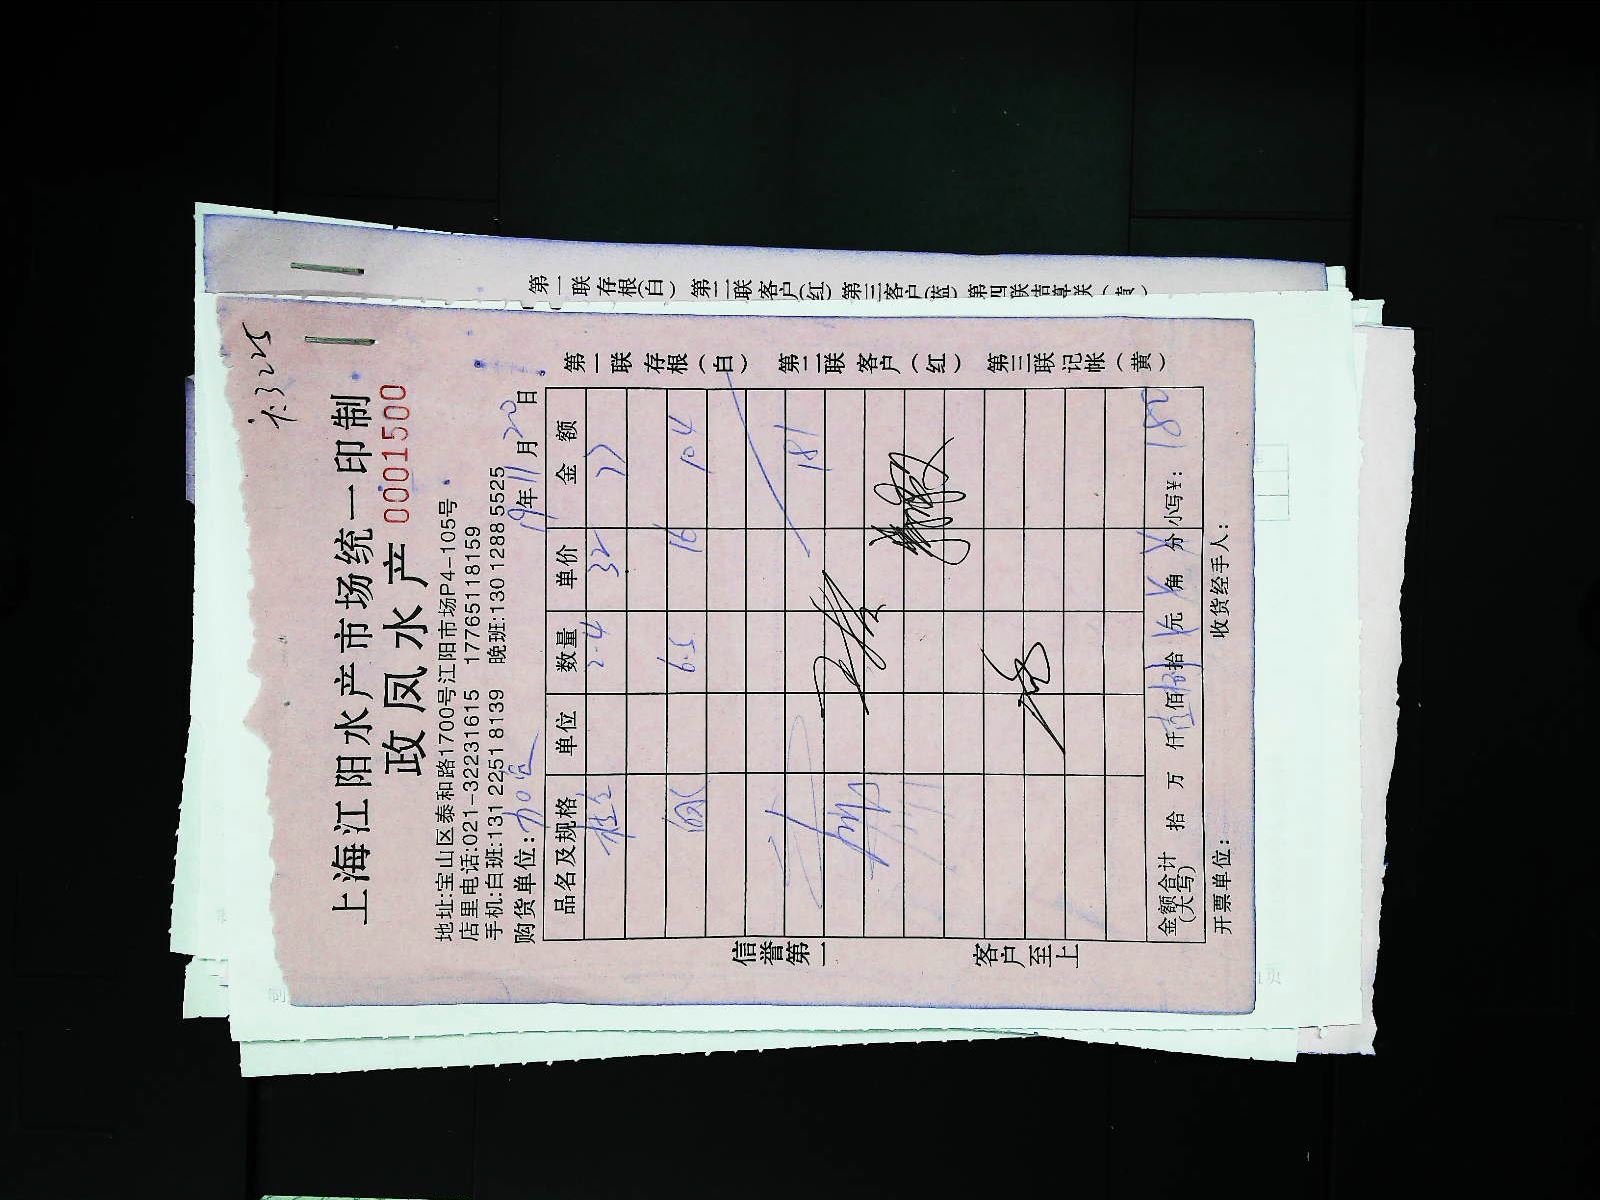 第一联 存根(白) 第二联 客户(红) 第三客户(蓝) 第四联
3225
上海江阳水产市场统一印制
政凤水产 0001500
地址:宝山区泰和路1700号江阳市场P4-105号
店里电话:021-32231615 17765118159
手机:白班:131 2251 8139 晚班:130 1288 5525
购货单位: 19年11月20日
品名及规格 单位 数量 单价 金额
2.4 32 77
6.5 16 104
181
金额合计(大写) 拾 万 仟 佰 拾 元 角 分 小写¥: 180
开票单位: 收货经手人:
第一联 存根(白) 第二联 客户(红) 第三联 记帐(黄)
信誉第一
客户至上